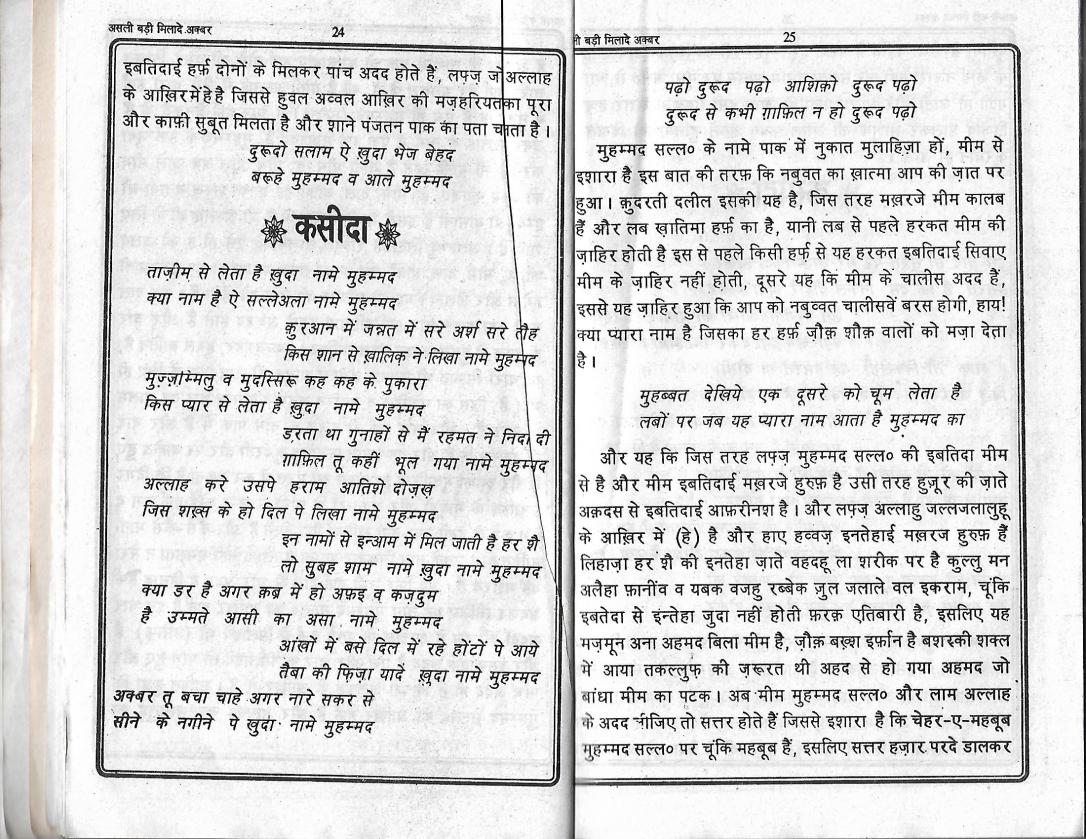 असली बड़ी मिलादे अक्बर
24
इबतिदाई हर्फ़ दोनों के मिलकर पांच अदद होते हैं, लफ़्ज़ जो अल्लाह
के आख़िर में हे है जिससे हुवल अव्वल आख़िर की मज़हरियत का पूरा
और काफ़ी सुबूत मिलता है और शाने पंजतन पाक का पता चलता है ।
दुरूदो सलाम ऐ ख़ुदा भेज बेहद
बरूहे मुहम्मद व आले मुहम्मद
कसीदा
ताज़ीम से लेता है ख़ुदा नामे मुहम्मद
क्या नाम है ऐ सल्लेअला नामे मुहम्मद
क़ुरआन में जन्नत में सरे अर्श सरे लौह
किस शान से ख़ालिक ने लिखा नामे मुहम्मद
मुज़्ज़म्मिलु व मुदस्सिरू कह कह के पुकारा
किस प्यार से लेता है ख़ुदा नामे मुहम्मद
डरता था गुनाहों से मैं रहमत ने निदा दी
ग़ाफ़िल तू कहीं भूल गया नामे मुहम्मद
अल्लाह करे उसपे हराम आतिशे दोज़ख़
जिस शख़्स के हो दिल पे लिखा नामे मुहम्मद
इन नामों से इन्आम में मिल जाती है हर शै
लो सुबह शाम नामे ख़ुदा नामे मुहम्मद
क्या डर है अगर क़ब्र में हो अफ़इ व कज़दुम
है उम्मते आसी का असा नामे मुहम्मद
आंखों में बसे दिल में रहे होंटों पे आये
तैबा की फिज़ा यादें ख़ुदा नामे मुहम्मद
अक्बर तू बचा चाहे अगर नारे सकर से
सीने के नगीने पे खुदा नामे मुहम्मद
ली बड़ी मिलादे अक्बर
25
पढ़ो दुरूद पढ़ो आशिको दुरूद पढ़ो
दुरूद से कभी ग़ाफ़िल न हो दुरूद पढ़ो
मुहम्मद सल्ल० के नामे पाक में नुकात मुलाहिज़ा हों, मीम से
इशारा है इस बात की तरफ़ कि नबुवत का ख़ात्मा आप की ज़ात पर
हुआ । क़ुदरती दलील इसकी यह है, जिस तरह मख़रजे मीम कालब
हैं और लब ख़ातिमा हर्फ़ का है, यानी लब से पहले हरकत मीम की
ज़ाहिर होती है इस से पहले किसी हर्फ़ से यह हरकत इबतिदाई सिवाए
मीम के ज़ाहिर नहीं होती, दूसरे यह कि मीम के चालीस अदद हैं,
इससे यह ज़ाहिर हुआ कि आप को नबुव्वत चालीसवें बरस होगी, हाय!
क्या प्यारा नाम है जिसका हर हर्फ़ ज़ौक़ शौक़ वालों को मज़ा देता
है ।
मुहब्बत देखिये एक दूसरे को चूम लेता है
लबों पर जब यह प्यारा नाम आता है मुहम्मद का
और यह कि जिस तरह लफ़्ज़ मुहम्मद सल्ल० की इबतिदा मीम
से है और मीम इबतिदाई मख़रजे हुरुफ़ है उसी तरह हुज़ूर की ज़ाते
अक़दस से इबतिदाई आफ़रीनश है । और लफ़्ज़ अल्लाहु जल्लजलालुहू
के आख़िर में (हे) है और हाए हव्वज़ इनतेहाई मख़रज हुरुफ़ हैं
लिहाज़ा हर शै की इनतेहा ज़ाते वहदहू ला शरीक पर है कुल्लु मन
अलैहा फ़ानींव व यबक वजहु रब्बेक ज़ुल जलाले वल इकराम, चूंकि
इबतेदा से इंन्तेहा जुदा नहीं होती फ़रक़ एतिबारी है, इसलिए यह
मज़मून अना अहमद बिला मीम है, ज़ौक़ बख़्श इर्फ़ान है बशरकी शक्ल
में आया तकल्लुफ़ की ज़रूरत थी अहद से हो गया अहमद जो
बांधा मीम का पटक । अब मीम मुहम्मद सल्ल० और लाम अल्लाह
के अदद लीजिए तो सत्तर होते हैं जिससे इशारा है कि चेहर-ए-महबूब
मुहम्मद सल्ल० पर चूंकि महबूब हैं, इसलिए सत्तर हज़ार परदे डालकर